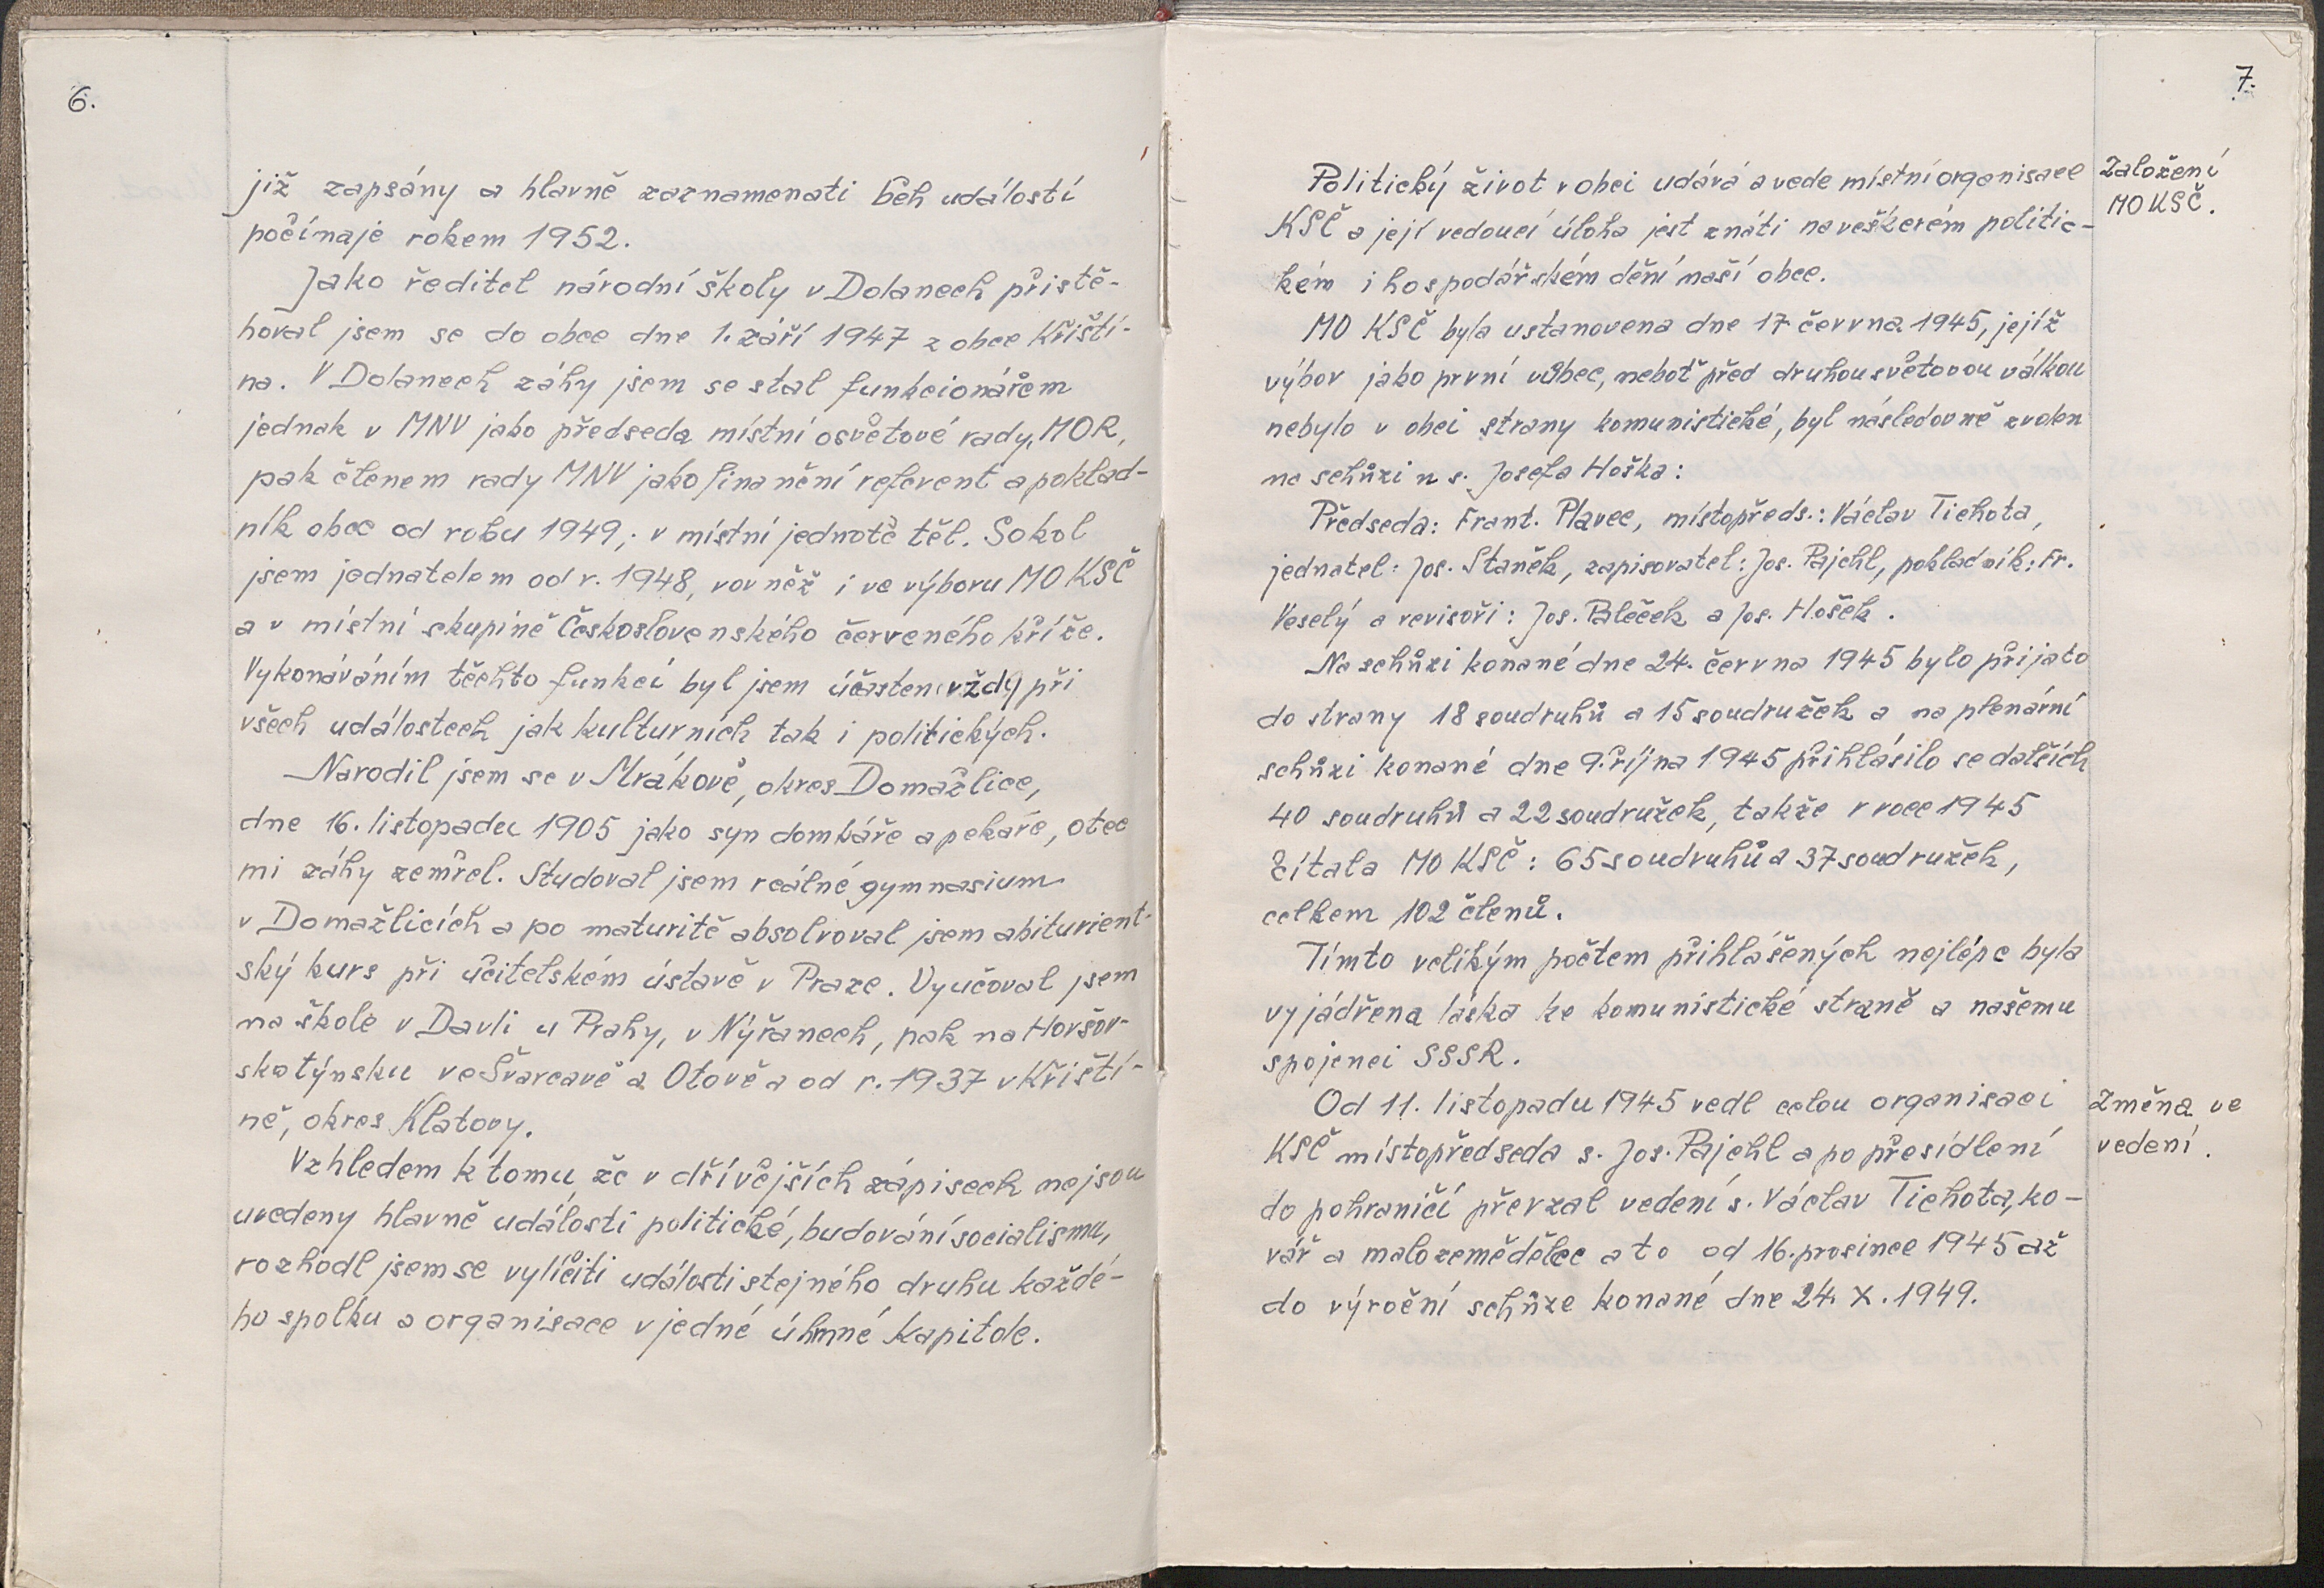 6.
již zapsány a hlavně zaznamenati běh událostí
počínaje rokem 1952.
Jako ředitel národní školy v Dolanech přistě-
hoval jsem se do obce dne 1. září 1947 z obce Křiští-
na. V Dolanech záhy jsem se stal funkcionářem
jednak v MNV jako předseda místní osvětové rady, MOR,
pak členem rady MNV jako finanční referent a poklad-
ník obce od roku 1949,; v místní jednotě těl. Sokol
jsem jednatelem od r. 1948, rovněž i ve výboru MO KSČ
a v místní skupině Československého červeného kříže.
Vykonáváním těchto funkcí byl jsem účasten vždy při
všech událostech jak kulturních tak i politických.
Narodil jsem se v Mrákově, okres Domažlice,
dne 16. listopadu 1905 jako syn domkáře a pekaře, otec
mi záhy zemřel. Studoval jsem reálné gymnasium
v Domažlicích a po maturitě absolvoval jsem abiturient-
ský kurs při učitelském ústavě v Praze. Vyučoval jsem
na škole v Davli u Prahy, v Nýřanech, pak na Horšov-
skotýnsku ve Švarcavě a Otově a od r. 1937 v Křiští-
ně, okres Klatovy.
Vzhledem k tomu, že v dřívějších zápisech nejsou
uvedeny hlavně události politické, budování socialismu,
rozhodl jsem se vylíčiti události stejného druhu každé-
ho spolku a organisace v jedné úhrnné kapitole.
7.
Politický život v obci udává a vede místní organisace
KSČ a její vedoucí úloha jest znáti na veškerém politic-
kém i hospodářském dění naší obce.
Založení
MO KSČ.
MO KSČ byla ustanovena dne 17. června 1945, jejíž
výbor jako první vůbec, neboť před druhou světovou válkou
nebylo v obci strany komunistické, byl následovně zvolen
na schůzi u s. Josefa Hoška:
Předseda: Frant. Plavec, místopředs.: Václav Tichota,
jednatel: Jos. Staněk, zapisovatel: Jos. Pajchl, pokladník: Fr.
Veselý a revisoři: Jos. Paleček a Jos. Hošek.
Na schůzi konané dne 24. června 1945 bylo přijato
do strany 18 soudruhů a 15 soudružek a na plenární
schůzi konané dne 9. října 1945 přihlásilo se dalších
40 soudruhů a 22 soudružek, takže v roce 1945
čítala MO KSČ: 65 soudruhů a 37 soudružek,
celkem 102 členů.
Tímto velikým počtem přihlášených nejlépe byla
vyjádřena láska ke komunistické straně a našemu
spojenci SSSR.
Od 11. listopadu 1945 vedl celou organisaci
KSČ místopředseda s. Jos. Pajchl a po přesídlení
do pohraničí převzal vedení s. Václav Tichota, ko-
vář a malozemědělec a to od 16. prosince 1945 až
do výroční schůze konané dne 24. X. 1949.
Změna ve
vedení.